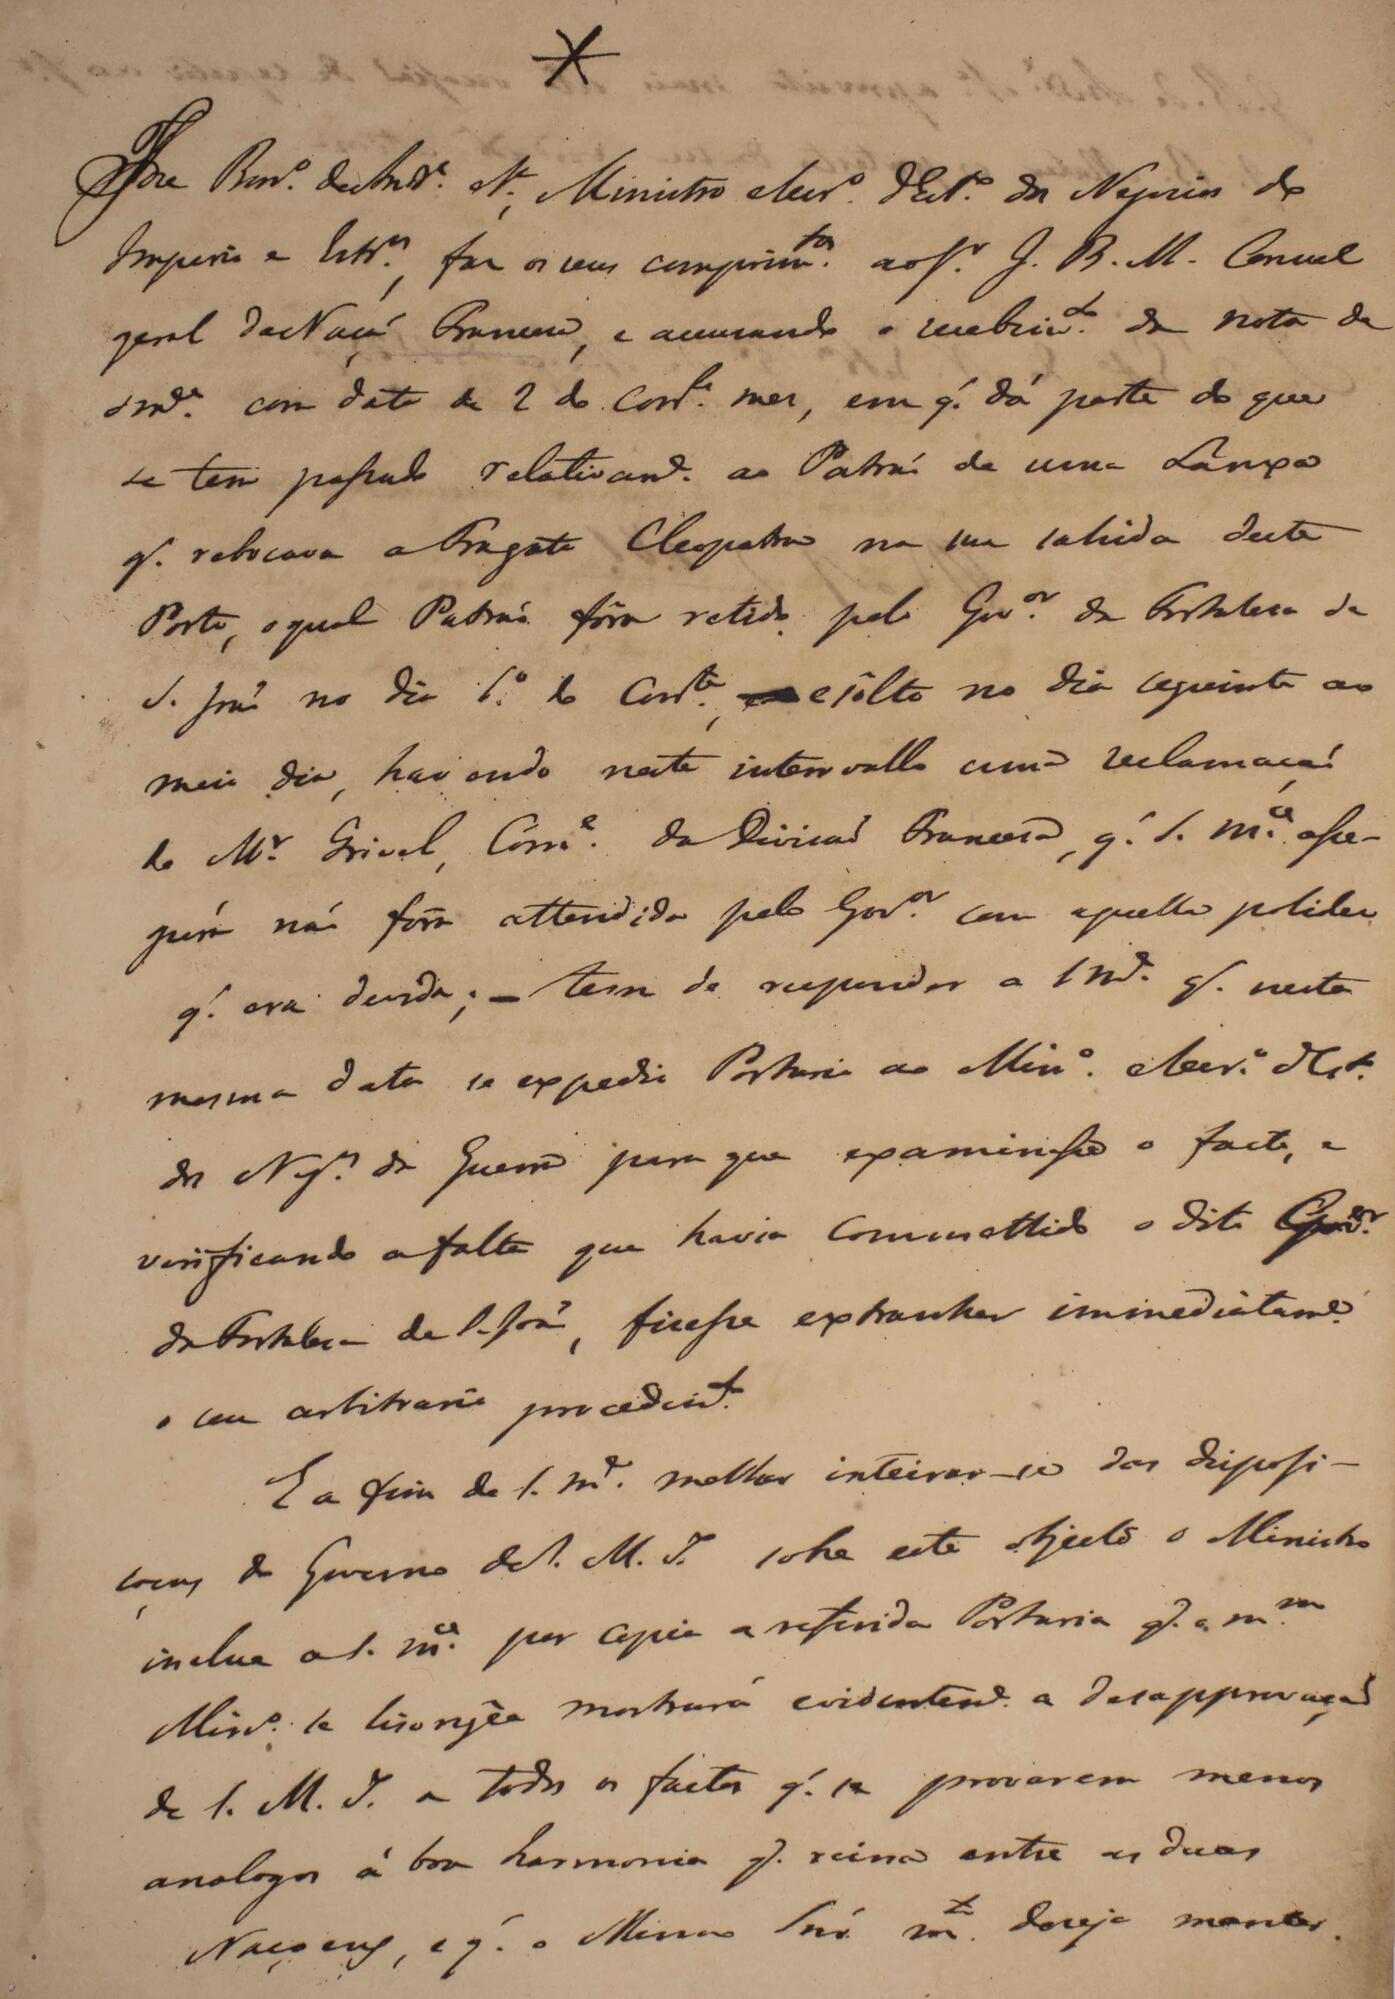 Joze Bon.º de Andr.ª e S.ª, Ministro e Secr.º d'Est.º dos Negocios do
Imperio e Estr.os, faz os seus comprim.tos ao Sr. J. B. M. Consul
geral da Naçaõ Franceza, e accusando o recebim.to da nota de
S. m.ce com data de 2 do corr.e mez, em q.' dá parte do que
se tem passado relativam.e ao Patraõ de uma Lanxa
q.' rebocava a Fragata Cleopatra na sua sahida deste
Porto, o qual Patraõ fôra retido pelo Gov.or da Fortaleza de
S. Joaõ no dia 1.º do corr.te, e sôlto no dia seguinte ao
meio dia, havendo neste intervallo uma reclamaçaõ
de Mr. Grivel, Com.e da Divisaõ Franceza, q.' S. m.ce asse-
gura naõ fôra attendida pelo Gov.or com aquella polidez
q.' era devida; - tem de responder a S. M.ce q.' nesta
mesma data se expedio Portaria ao Min.º e Secr.º d'Est.º
dos Neg.os da Guerra para que examinasse o facto, e
verificando a falta que havia commettido o dito Gov.or
da Fortaleza de S. Joaõ, fizesse extranhar immediatam.e
o seu arbitrario procedim.to
E a fim de S. m.ce melhor inteirar-se das disposi-
çoens do Governo de S. M. I. sobre este objecto o Ministro
inclue a S. m.ce por copia a referida Portaria q.' o m.mo
Min.º se lisongêa mostrará evidentem.e a desapprovaçaõ
de S. M. I. a todos os factos q.' se provarem menos
analogos á boa harmonia q.' reina entre as duas
Naçoens, e q.' o Mesmo Snr. m.to deseja manter.